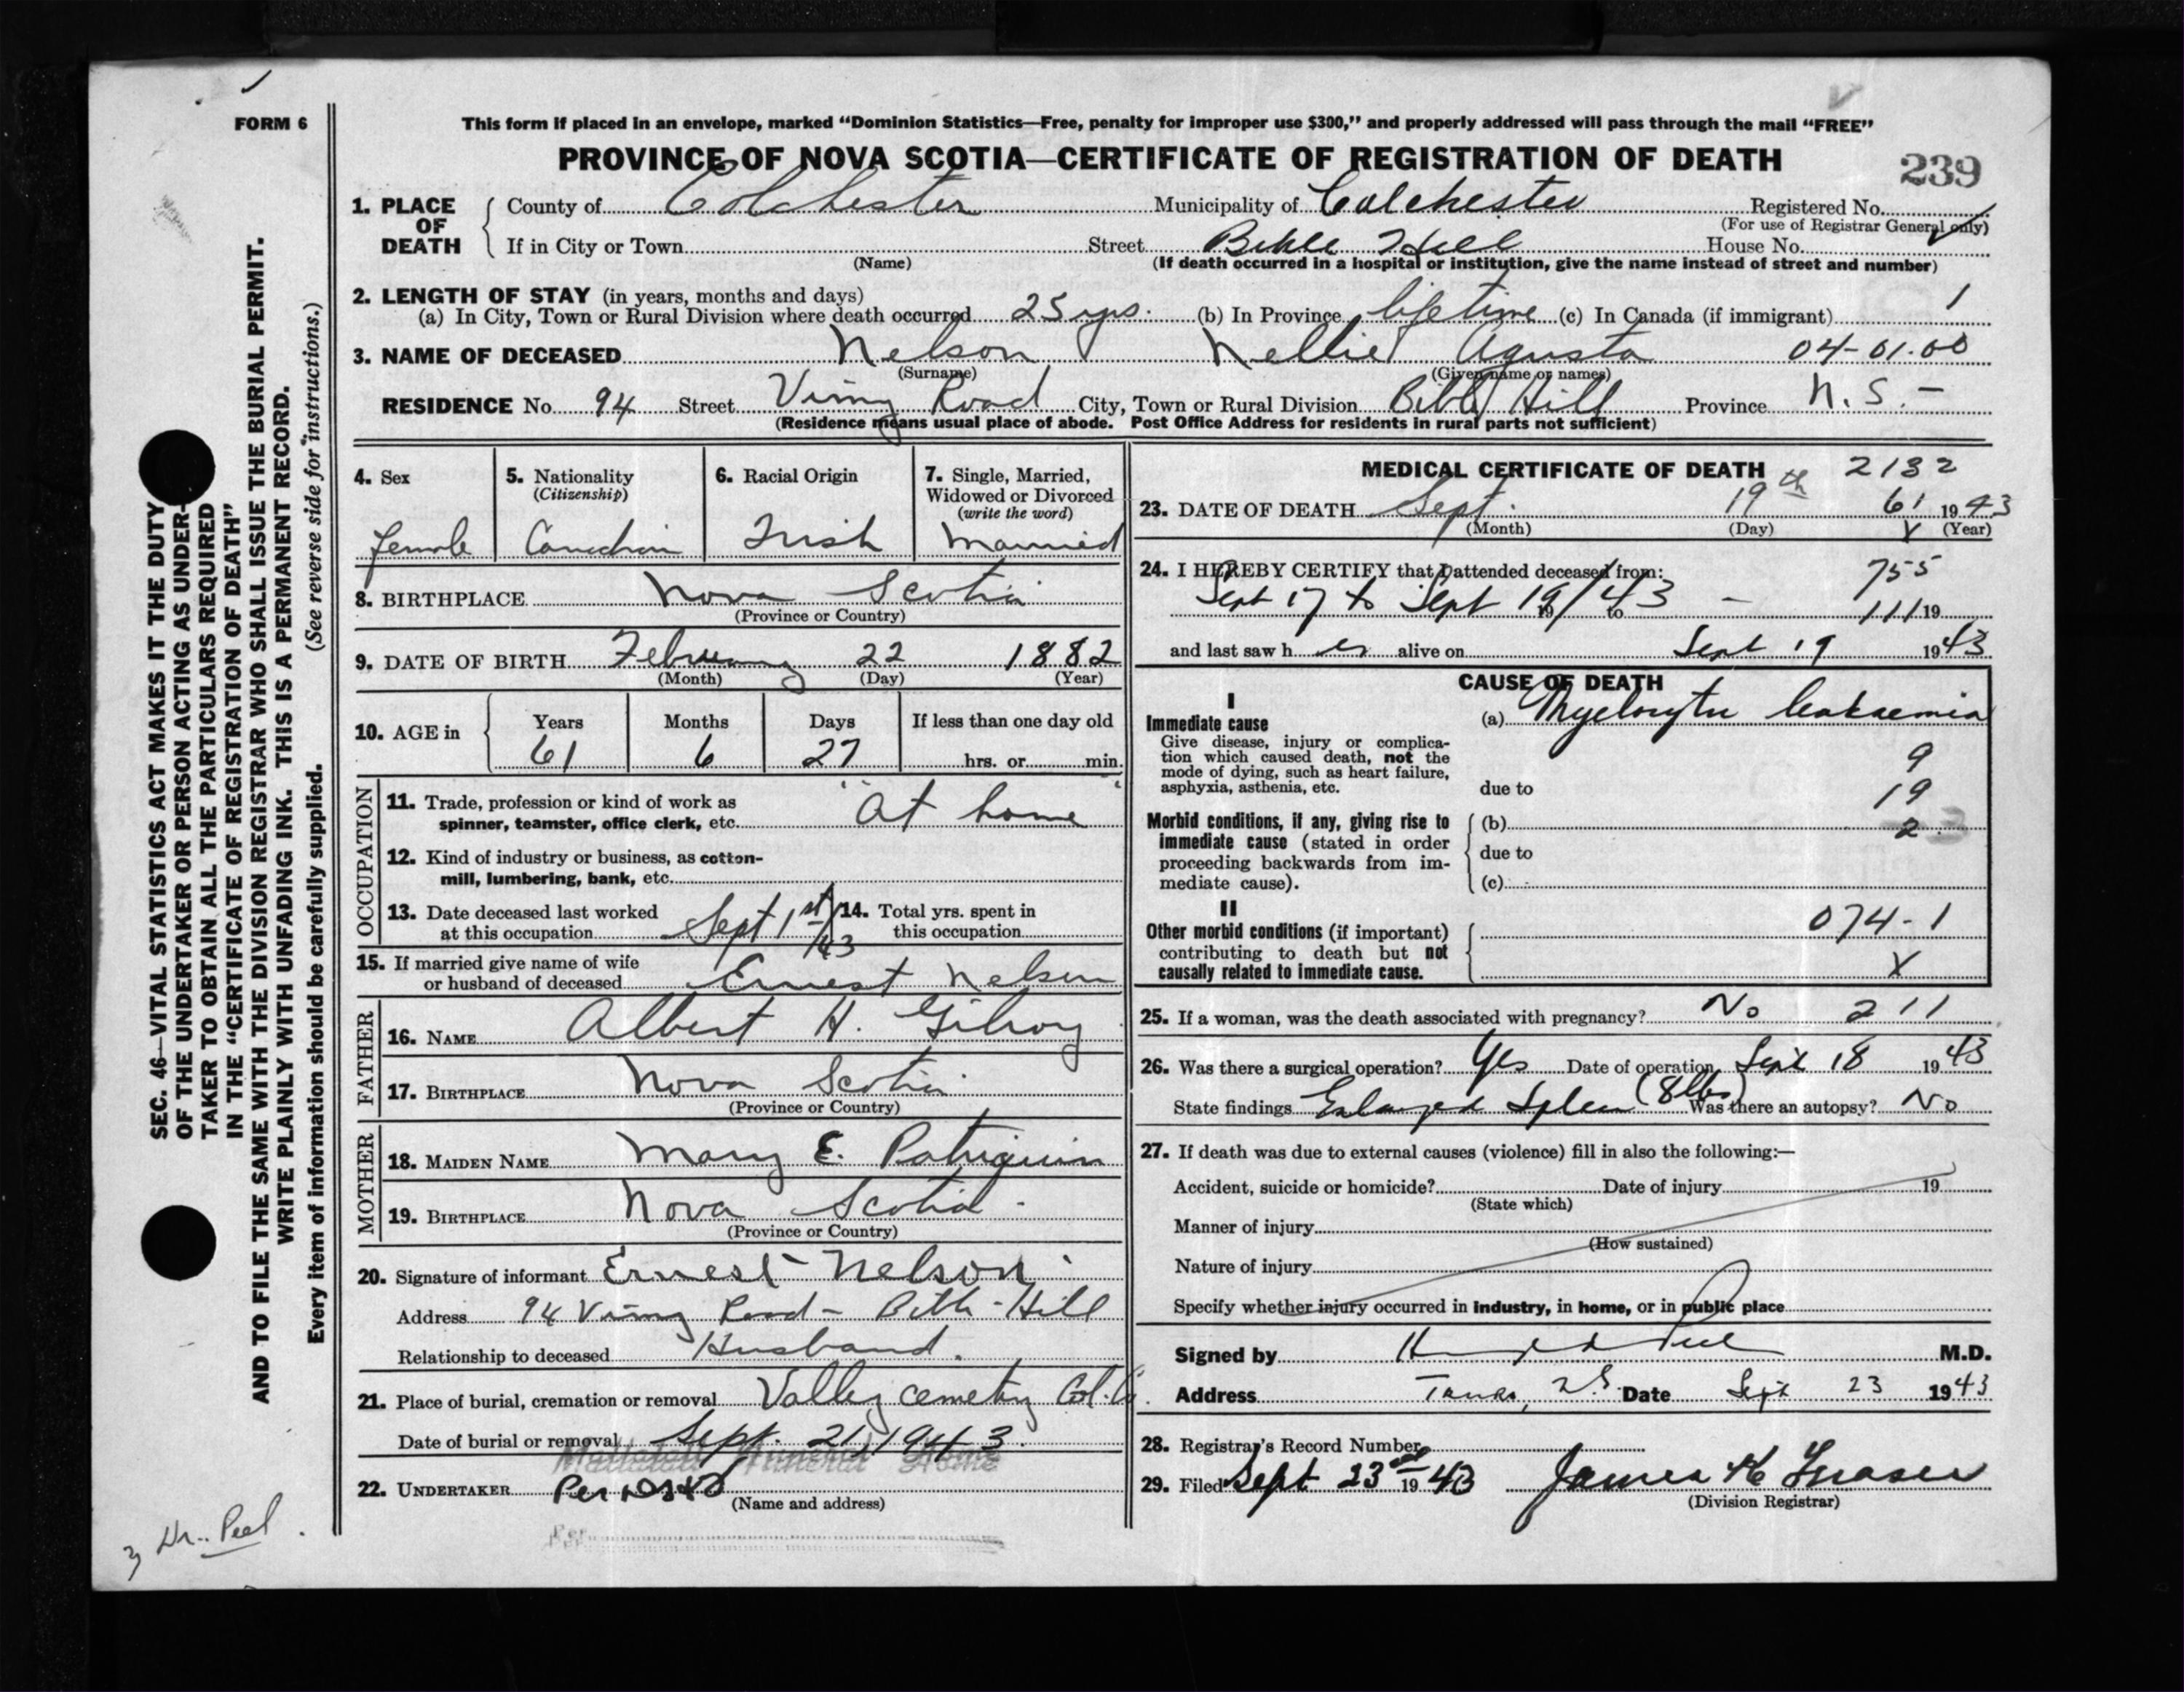 FORM 6
This form if placed in an envelope, marked “Dominion Statistics—Free, penalty for improper use $300,” and properly addressed will pass through the mail “FREE”
PROVINCE OF NOVA SCOTIA—CERTIFICATE OF REGISTRATION OF DEATH
239
1. PLACE OF DEATH County of Colchester Municipality of Colchester Registered No.
(For use of Registrar General only)
If in City or Town Street Bible Hill House No.
(Name) (If death occurred in a hospital or institution, give the name instead of street and number)
2. LENGTH OF STAY (in years, months and days)
(a) In City, Town or Rural Division where death occurred 25 yrs. (b) In Province lifetime (c) In Canada (if immigrant) 1
3. NAME OF DECEASED Nelson Nellie Agusta 04-01.00
(Surname) (Given name or names)
RESIDENCE No. 94 Street Vimy Road City, Town or Rural Division Bible Hill Province N.S. -
(Residence means usual place of abode. Post Office Address for residents in rural parts not sufficient)
4. Sex
female
5. Nationality
(Citizenship)
Canadian
6. Racial Origin
Irish
7. Single, Married,
Widowed or Divorced
(write the word)
Married
8. BIRTHPLACE Nova Scotia
(Province or Country)
9. DATE OF BIRTH February 22 1882
(Month) (Day) (Year)
10. AGE in Years Months Days If less than one day old
61 6 27 hrs. or min.
OCCUPATION
11. Trade, profession or kind of work as
spinner, teamster, office clerk, etc. "At home"
12. Kind of industry or business, as cotton-
mill, lumbering, bank, etc.
13. Date deceased last worked
at this occupation Sept 1st/43
14. Total yrs. spent in
this occupation
15. If married give name of wife
or husband of deceased Ernest Nelson
FATHER
16. NAME Albert H. Gilroy
17. BIRTHPLACE Nova Scotia
(Province or Country)
MOTHER
18. MAIDEN NAME Mary E. Patriquin
19. BIRTHPLACE Nova Scotia -
(Province or Country)
20. Signature of informant Ernest Nelson
Address 94 Vimy Road - Bible - Hill
Relationship to deceased Husband.
21. Place of burial, cremation or removal Valley Cemetry Col. Co.
Date of burial or removal Sept. 21, 1943.
Mattatall Funeral Home
22. UNDERTAKER Per
(Name and address)
Per
MEDICAL CERTIFICATE OF DEATH 2132
23. DATE OF DEATH Sept. 19th 61 1943
(Month) (Day) X (Year)
24. I HEREBY CERTIFY that I attended deceased from: 755
Sept 17 to Sept 19/43 - 19 to 111 19
and last saw her alive on Sept 19 1943
CAUSE OF DEATH
I
Immediate cause
Give disease, injury or complica-
tion which caused death, not the
mode of dying, such as heart failure,
asphyxia, asthenia, etc.
(a) Myelocytic leukaemia
9
due to 19
Morbid conditions, if any, giving rise to
immediate cause (stated in order
proceeding backwards from im-
mediate cause).
(b) 2
due to
(c)
II
Other morbid conditions (if important)
contributing to death but not
causally related to immediate cause.
074-1
X
25. If a woman, was the death associated with pregnancy? No 211
26. Was there a surgical operation? Yes Date of operation Sept 18 1943
State findings Enlarged Spleen (8 lbs) Was there an autopsy? No
27. If death was due to external causes (violence) fill in also the following:—
Accident, suicide or homicide? Date of injury 19
(State which)
Manner of injury
(How sustained)
Nature of injury
Specify whether injury occurred in industry, in home, or in public place
Signed by Peel M.D.
Address Truro, N.S. Date Sept 23 1943
28. Registrar's Record Number
29. Filed Sept 23rd 1943 James H Fraser
(Division Registrar)
SEC. 46—VITAL STATISTICS ACT MAKES IT THE DUTY
OF THE UNDERTAKER OR PERSON ACTING AS UNDER-
TAKER TO OBTAIN ALL THE PARTICULARS REQUIRED
IN THE “CERTIFICATE OF REGISTRATION OF DEATH”
AND TO FILE THE SAME WITH THE DIVISION REGISTRAR WHO SHALL ISSUE THE BURIAL PERMIT.
WRITE PLAINLY WITH UNFADING INK. THIS IS A PERMANENT RECORD.
Every item of information should be carefully supplied. (See reverse side for instructions.)
3 Dr. Peel.